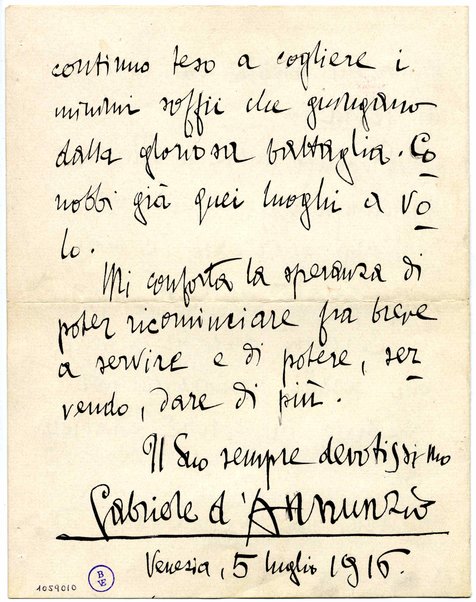 continuo teso a cogliere i
minimi soffii che giungano
dalla gloriosa battaglia. Co
nobbi già quei luoghi a vo
lo.
Mi conforta la speranza di
poter ricominciare fra breve
a servire e di potere, ser
vendo, dare di più.
Il Suo sempre devotissimo
Gabriele d'Annunzio
Venezia, 5 luglio 1916.
1059010